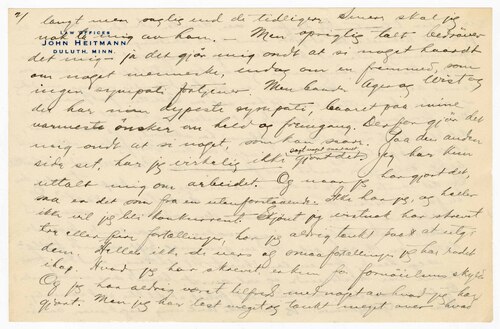 2/
langt men vaglig end de tidligere. Senere skal jeg
LAW OFFICES
JOHN HEITMANN
DULUTH, MINN.
nok de mig av ham. — Men oprigtig talt bedrøver
det mig — ja det gjør mig ondt at si noget haardt
om noget menneske, endog om en fremmed, som
ingen sympati fortjener. Men baade Ager og Wist og
de har min dypeste sympati, baaret paa mine
varmeste ønsker om held og fremgang. Derfor gjør det
mig ondt at si noget, som kan saare. Paa den anden
side set, har jeg virkelig ikke gjort det. Jeg har kun
uttalt mig om arbeidet. Og naar jeg har gjort det,
saa er det som fra en utenforstaaende. Ikke har jeg, og heller
ikke vil jeg bli konkurrent. Skjønt jeg vistnok har skrevet
tre eller fire fortællinger, har jeg aldrig tænkt paa at utgi
dem. Heller ikke de vers og smaafortællinger jeg har
skap. Hvad jeg har skrevet er kun for fornøielsens skyld.
Og jeg har aldrig været tilfreds med noget av hvad jeg har
gjort. Men jeg har læst meget og tænkt meget over hvad